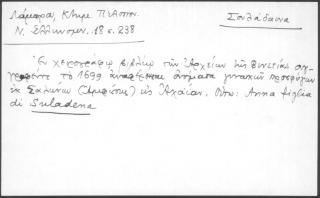 Λάμπρου, Κτημ. Πελοπον.
Σουλάδαινα
Ν. Ἑλληνομν. 18 σ. 238
Ἐν χειρογράφῳ βιβλίῳ τῶν Ἀρχείων τῆς Βενετίας συγγραφέντι
τὸ 1699 ἀναφέρεται ὄνομα γυναικῶν προσφύγων
ἐκ Σαλώνων (Ἀμφίσσης) εἰς Ἀχαΐαν. Οὕτω: Anna figlia
di Suladena